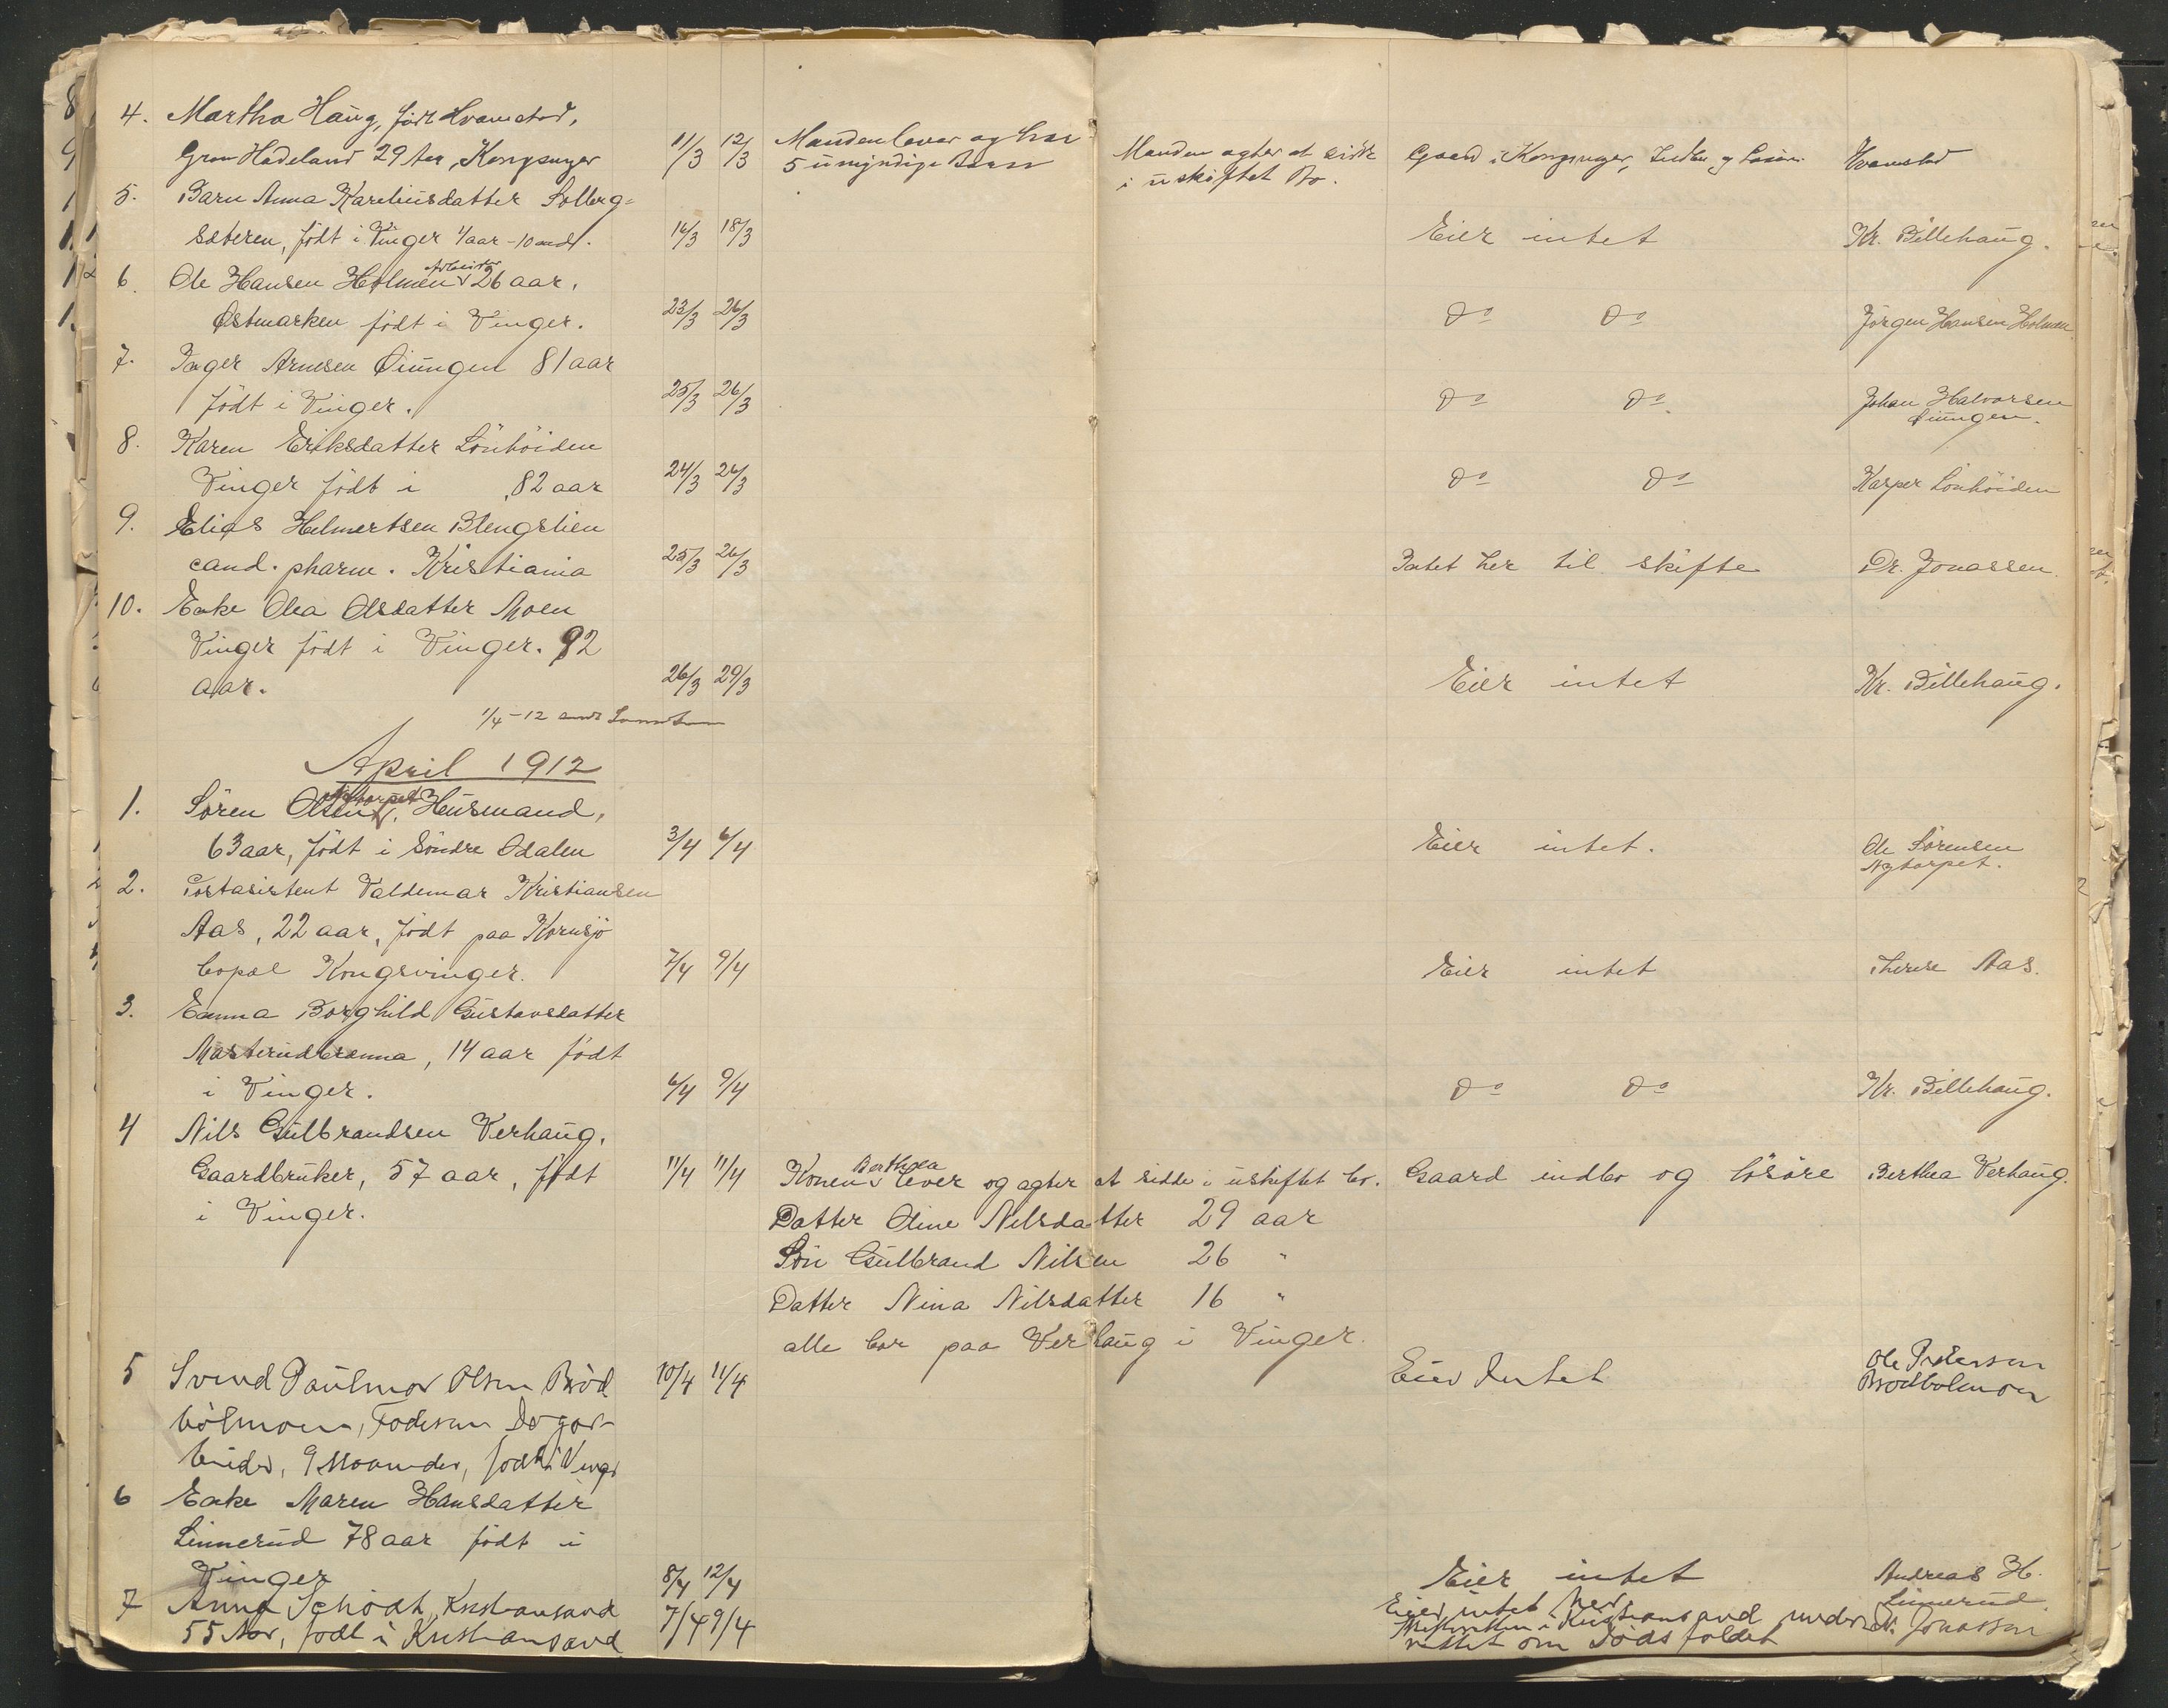 4. Martha Haug, født Hvamstad, 11/3 12/3 Manden lever og har Manden agter at sidde Gaard i Kongsvinger, Indbo og Løsøre Hvamstad
Gran Hadeland 29 Aar, Kongsvinger 5 umyndige Børn i uskiftet Bo.
5. Barn Anna Kareliusdatter Solberg-
sæteren, født i Vinger 1/aar - 10 md. 16/3 18/3 Eier intet Kr. Billehaug.
6. Ole Hansen Holmen Arbeider 26 aar,
Østmarken født i Vinger. 23/3 26/3 Do Do Jörgen Hansen Holmen
7. Inger Arnesen Öiungen 81 aar
født i Vinger. 25/3 26/3 Do Do. Johan Halvorsen
Öiungen.
8. Karen Eriksdatter Lönhöiden
Vinger født i 82 aar 24/3 26/3 Do Do Kasper Lönhöiden
9. Elias Helmertsen Blengslien
cand. pharm. Kristiania 25/3 26/3 Intet her til skifte Dr. Jonassen.
10. Enke Olea Olsdatter Moen
Vinger født i Vinger. 92
aar. 26/3 29/3 Eier intet Kr. Billehaug.
1/4 - 12
April 1912
1. Sören Olsen Nytorpet, Husmand,
63 aar, født i Söndre Odalen 3/4 6/4 Eier intet. Ole Sörensen
Nytorpet.
2. Postasistent Valdemar Kristiansen
Aas, 22 aar, født paa Kornsjö
bopæl Kongsvinger. 7/4 9/4 Eier intet Therese Aas.
3. Emma Borghild Gustavsdatter
Masterudbrænna, 14 aar født
i Vinger. 6/4 9/4 Do Do Kr. Billehaug.
4 Nils Gulbrandsen Verhaug.
Gaardbruker, 57 aar, født 11/4 11/4 Konen Berthea lever og agter at sidde i uskiftet bo. Gaard indbo og lösöre Berthea Verhaug.
i Vinger. Datter Oline Nilsdatter 29 aar
Sön Gulbrand Nilsen 26 "
Datter Nina Nilsdatter 16 "
alle bor paa Verhaug i Vinger.
5 Svend Paulmar Olsen Bröd 10/4 11/4 Eier Intet Ole Pedersen
bölmoen, Foderen Dagar- Brodbolmoen
beider, 9 Maaneder, født i Vinger
6 Enke Maren Hansdatter
Linnerud 78 aar født i
Vinger 8/4 12/4 Eier intet Andreas H.
Linnerud.
7 Anna Schödt, Kristiansand 7/4 9/4 Eier intet her
55 Aar, født i Kristiansand Skifteretten i Kristiansand under- Dr. Jonassen
rettet om Dödsfaldet